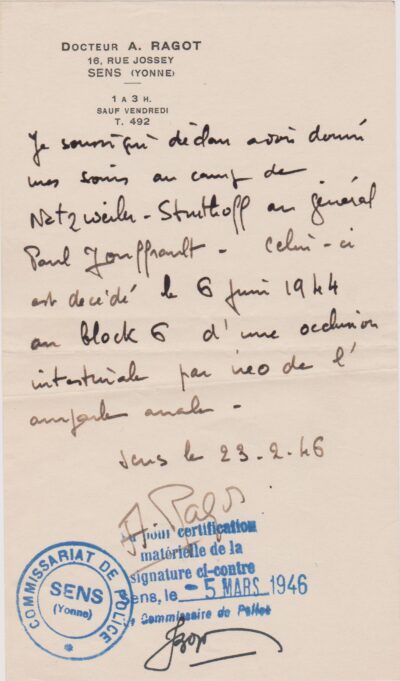 DOCTEUR A. RAGOT
16, RUE JOSSEY
SENS (YONNE)
1 A 3 H.
SAUF VENDREDI
T. 492
Je soussigné déclare avoir donné
mes soins au camp de
Natzweiler-Struthoff au général
Paul Jouffrault - Celui-ci
est décédé le 6 Juin 1944
au block 6 d'une occlusion
intestinale par néo de l'
ampoule anale -
Sens le 23-2-46
A. Ragot
pour certification
matérielle de la
signature ci-contre
Sens, le - 5 MARS 1946
Commissaire de Police
COMMISSARIAT DE POLICE
SENS
(Yonne)